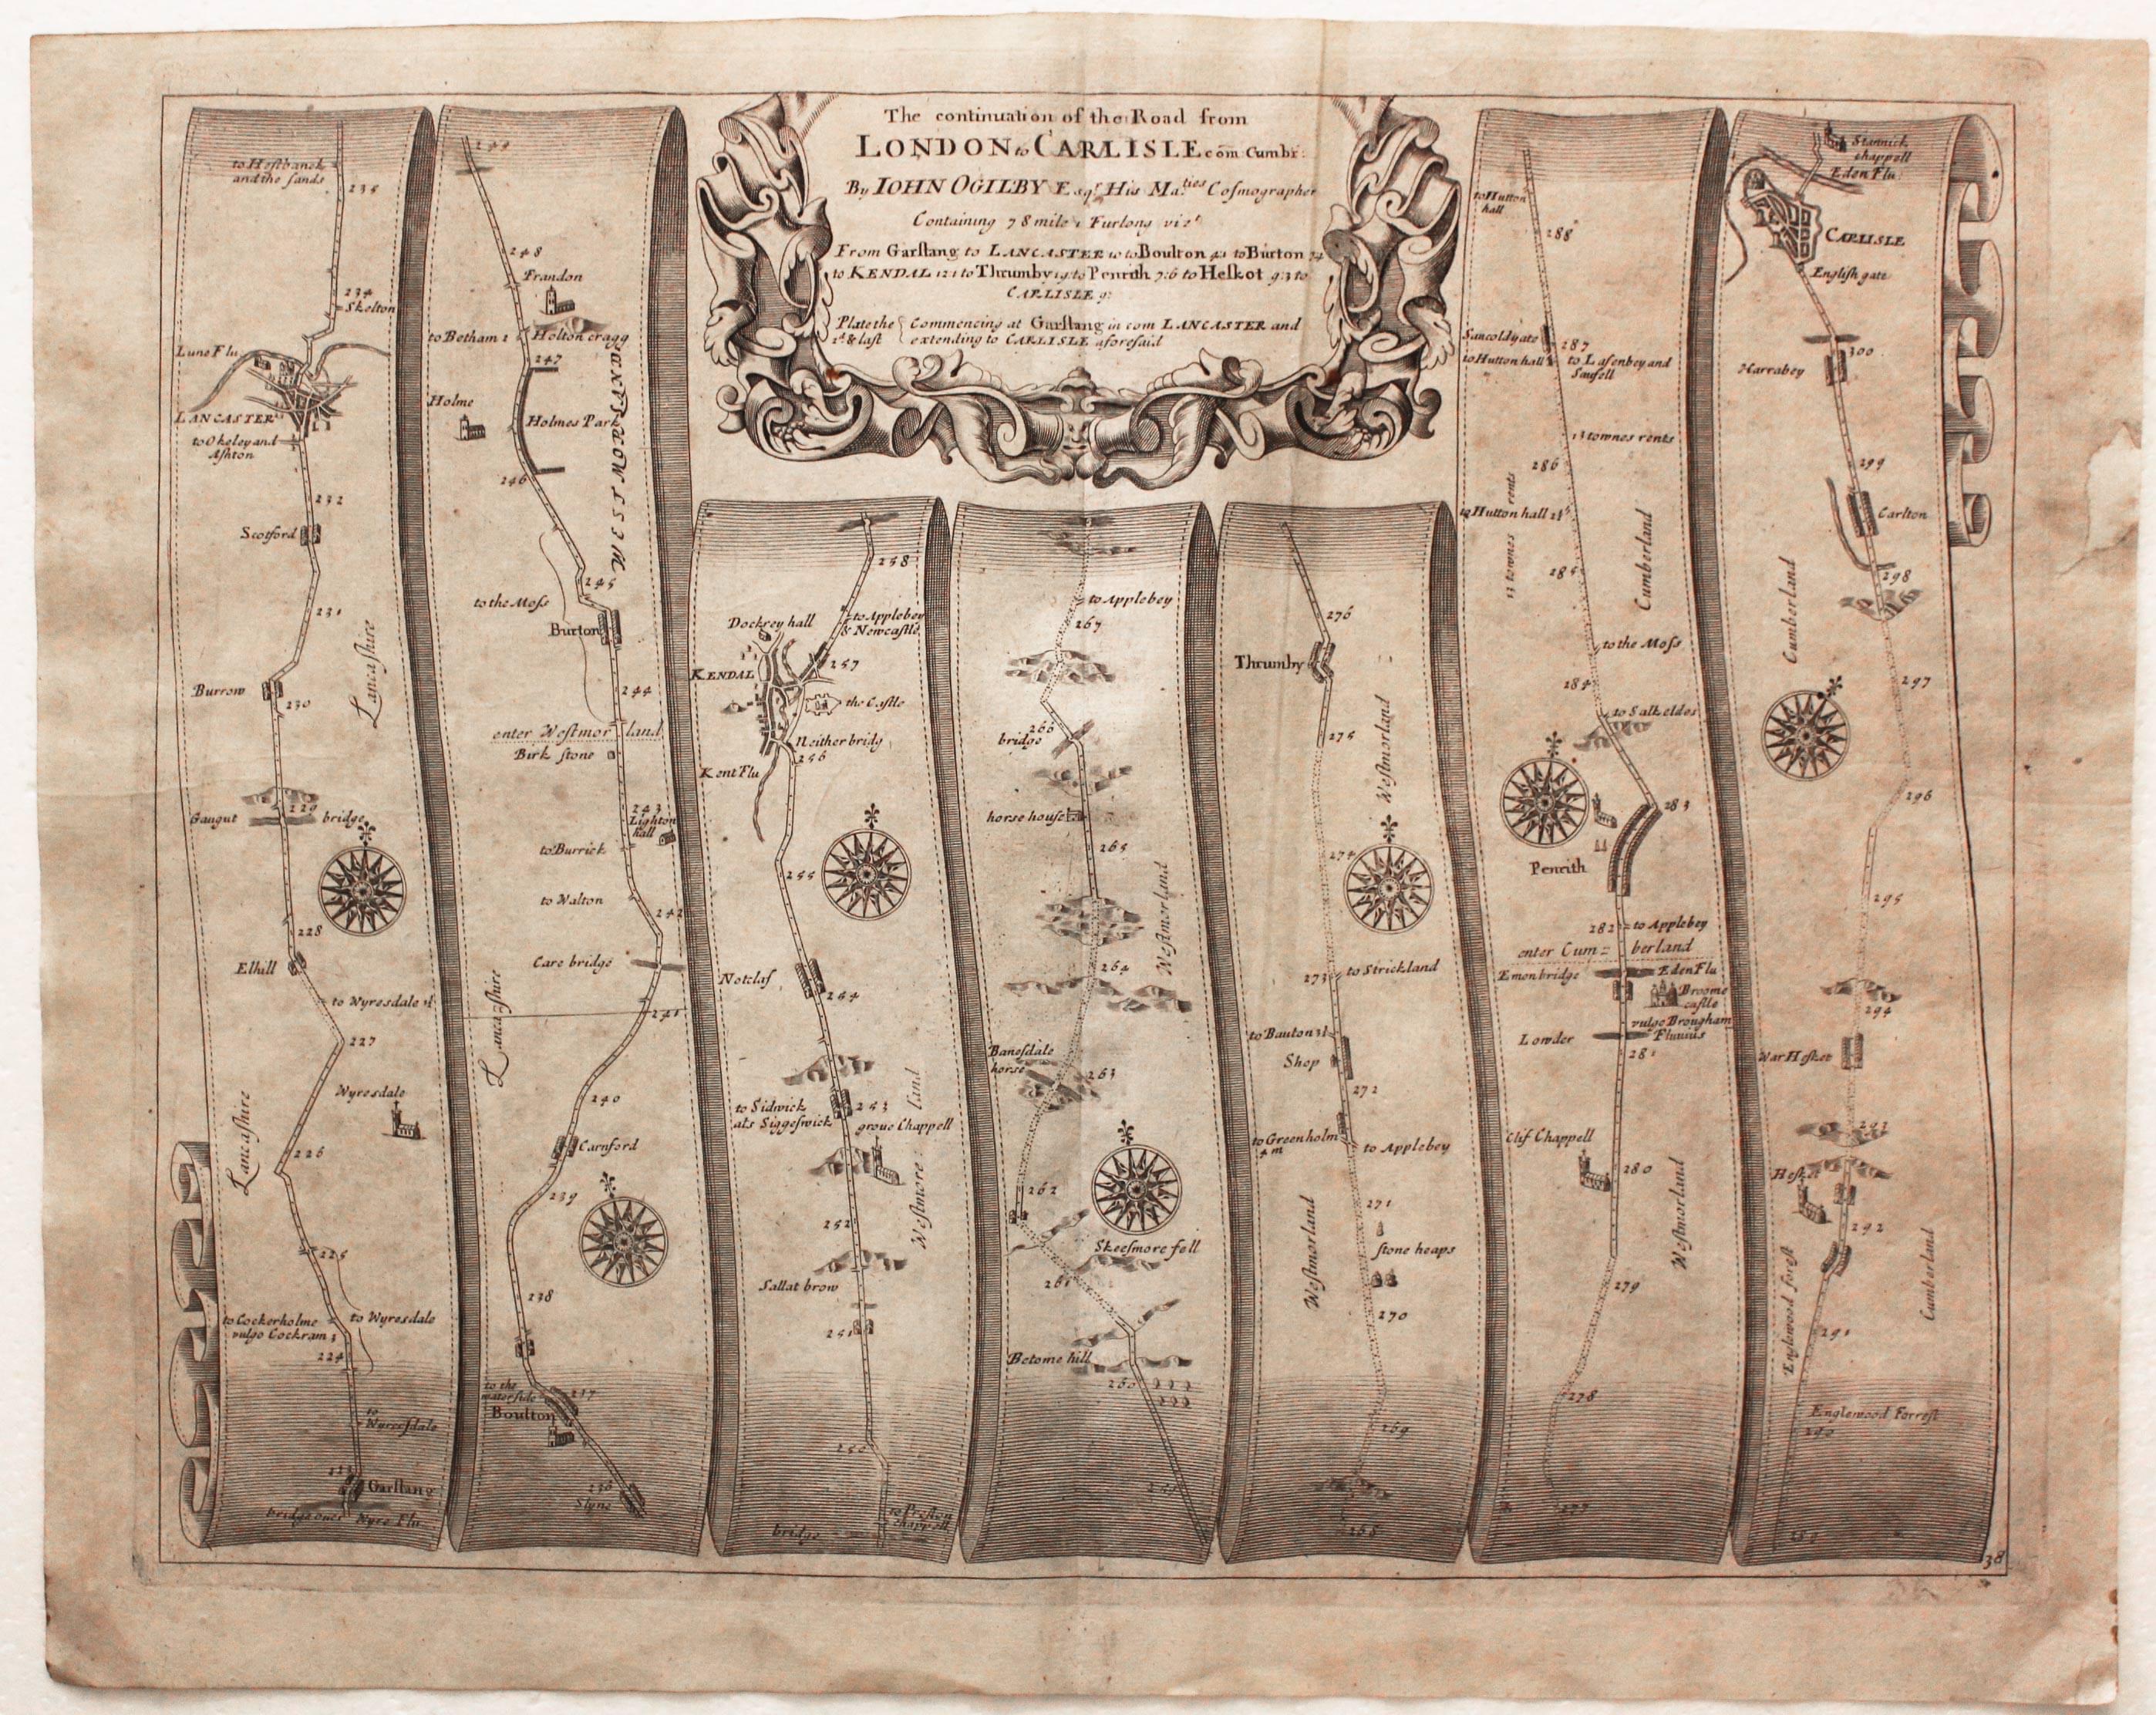 The continuation of the Road from
LONDON to CARLISLE com Cumbr:
By IOHN OGILBY Esqr. His Maties Cosmographer
Containing 78 mile 1 Furlong vizt
From Garstang to LANCASTER 10 to Boulton 4:1 to Burton
to KENDAL 12:1 to Thrumby 19 to Penrith 7:6 to Heskot 9:3 to
CARLISLE 9:
Plate the { Commencing at Garstang in com LANCASTER and
2d & last extending to CARLISLE aforesaid
to Hestbanck
and the sands
235
234
Skelton
Lune Flu
LANCASTER
to Okeley and
Ashton
232
Scotford
231
Lancashire
Burrow
230
229
Gaugut bridge
228
Elhill
to Wyresdale
227
Wyresdale
Lancashire
226
225
to Cockerholme
vulgo Cockram 3
to Wyresdale
224
to
Wyresdale
Garstang
bridge over Wyre Flu
248
Frandon
to Betham 2
Holton cragg
247
Holme
Holmes Park
WESTMORLAND
246
245
to the Moss
Burton
244
enter Westmorland
Birk stone
243
Lighton
hall
to Burrick
to Walton
242
Care bridge
241
Lancashire
240
Carnford
239
238
to the
waterside
237
Boulton
236
Slyne
258
Dockrey hall
to Appleby
& Newcastle
257
KENDAL
the Castle
Neither bridg
256
Kent Flu
255
Notclaf
254
to Sidwick
als Siggeswick
253
grove Chappell
Westmore: land
252
Sallat brow
251
250
bridge
to Preston
chappell
to Applebey
267
266
bridge
horse house
265
Westmorland
264
Banesdale
horse
263
262
Skeesmore fell
261
Betome hill
260
276
Thrumby
275
Westmorland
274
273
to Strickland
to Bauton
Shop
272
to Greenholm
4 m
to Applebey
271
Westmorland
stone heaps
270
269
268
to Hutton
hall
288
Sancoldyate
287
to Hutton hall
to Lasenbey and
13 townes rents
286
13 townes rents
to Hutton hall
Cumberland
285
to the Moss
284
to Salkeldes
283
Penrith
282
to Applebey
enter Cum= berland
Emonbridge
Eden Flu
Broome
castle
vulgo Brougham
Lowder
Fluvius
281
Clif Chappell
280
Westmorland
279
278
277
Stanwick
chappell
Eden Flu
CARLISLE
English gate
300
Harrabey
299
Carlton
298
Cumberland
297
296
295
294
War Hesket
293
Hesket
292
Englewood forest
Cumberland
291
Englewood Forrest
290
38